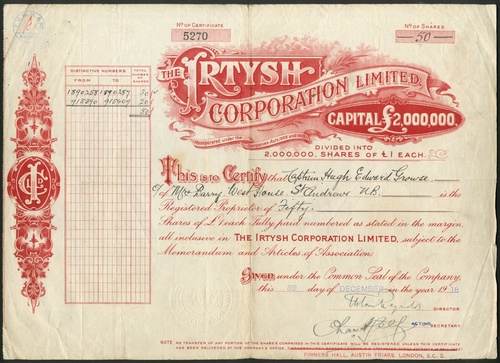 No OF CERTIFICATE
5270
No OF SHARES
50
DISTINCTIVE NUMBERS
FROM TO
TOTAL NUMBER OF SHARES
1890258 1890287 30
915890 915909 20
50
THE IRTYSH
CORPORATION LIMITED.
CAPITAL £2,000,000.
DIVIDED INTO
2,000,000, SHARES OF £1 EACH.
This is to Certify that Captain Hugh Edward Growse
c/o Mrs Parry West House St Andrews N.B. is the
Registered Proprietor of Fifty
Shares of £1 each Fully paid numbered as stated in the margin
all inclusive in THE IRTYSH CORPORATION LIMITED, subject to the
Memorandum and Articles of Association
GIVEN under the Common Seal of the Company,
this day of DECEMBER in the year 1918
DIRECTOR
ACTING SECRETARY
NOTE. NO TRANSFER OF ANY PORTION OF THE SHARES COMPRISED IN THIS CERTIFICATE WILL BE REGISTERED UNLESS THIS CERTIFICATE
HAS BEEN DELIVERED AT THE COMPANY'S OFFICE
PINNERS HALL, AUSTIN FRIARS, LONDON, E.C. 2.